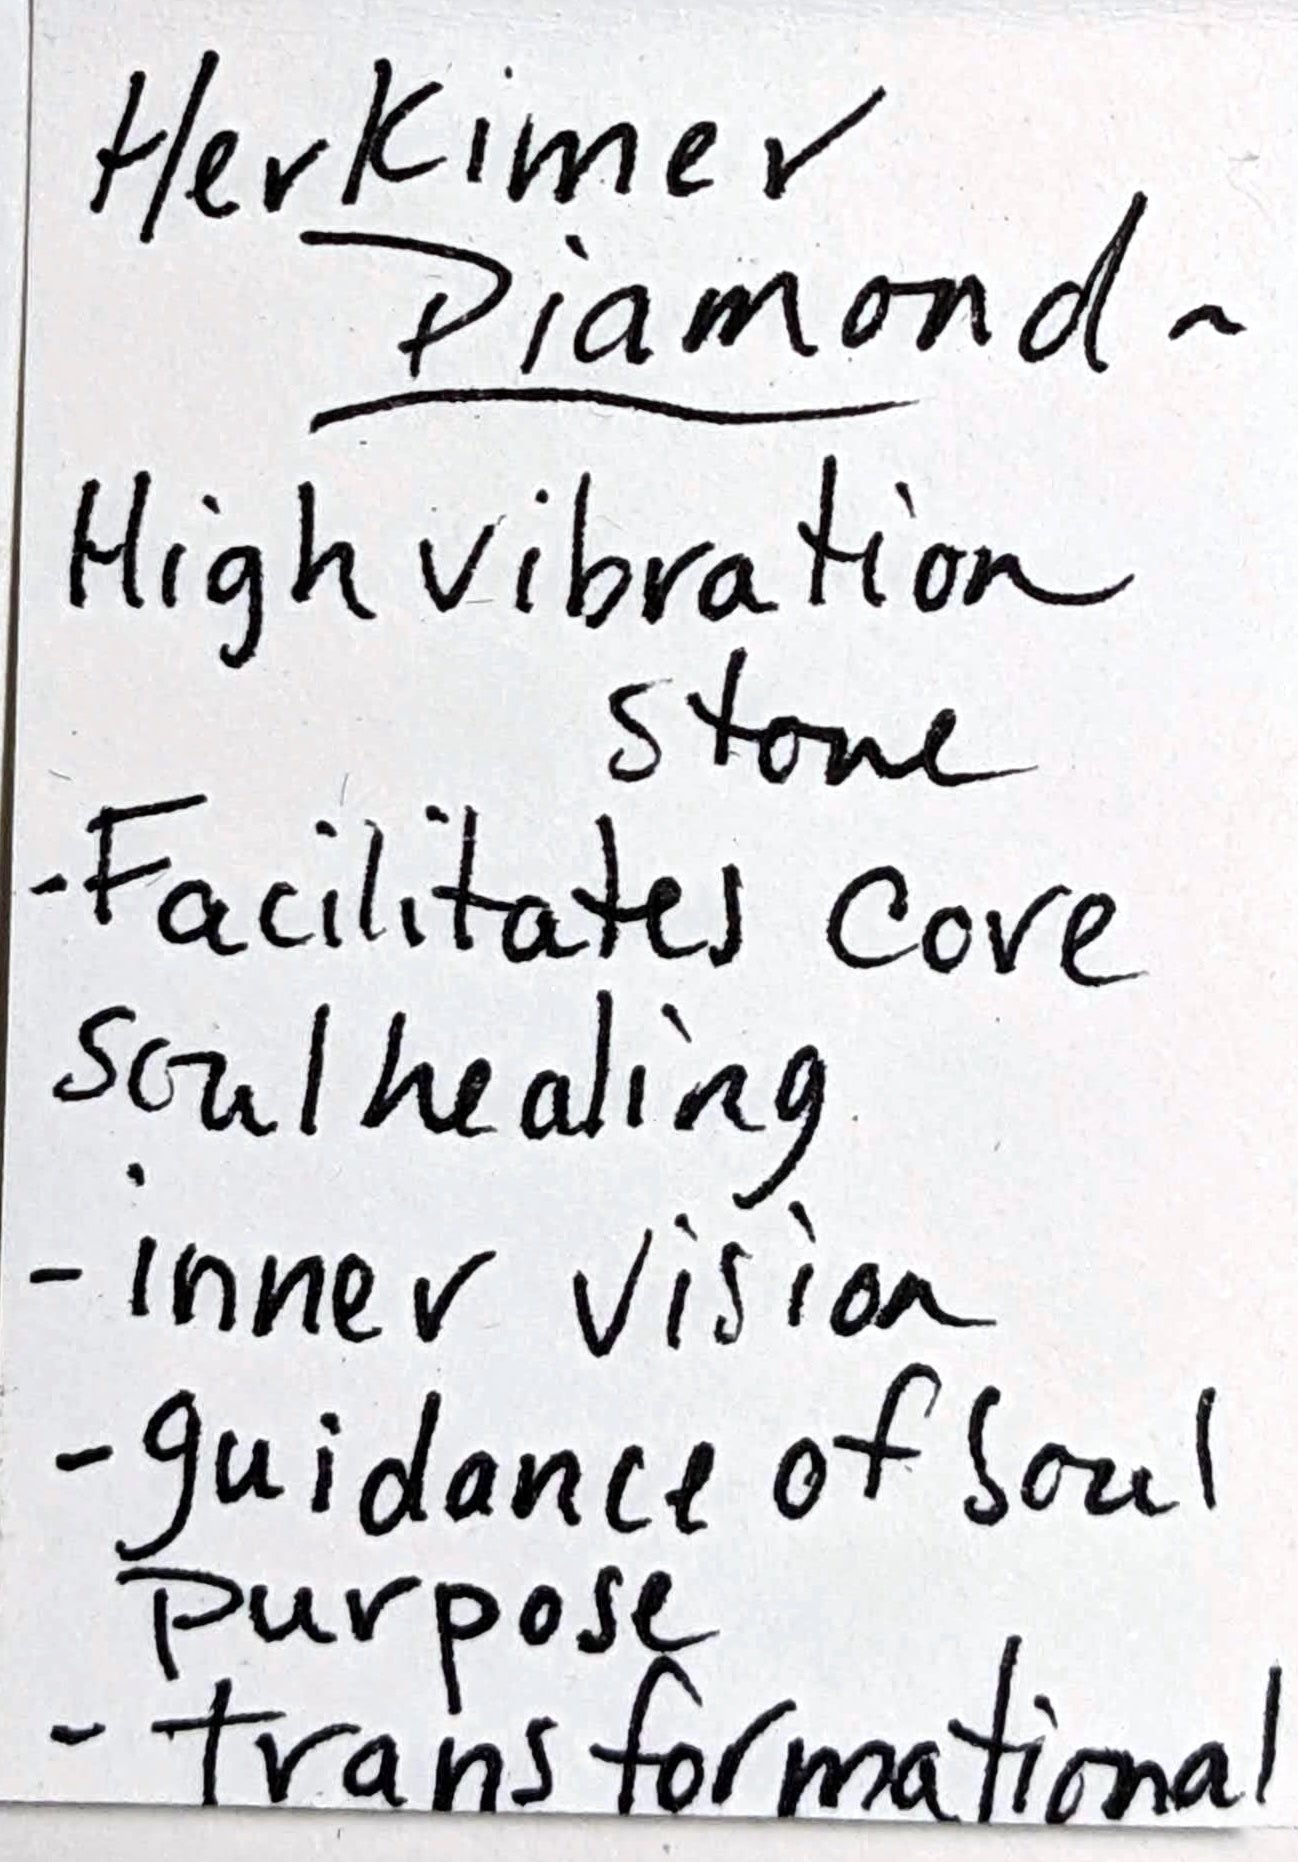 Herkimer
Diamond ~
High vibration
stone
- Facilitates core
soul healing
- inner vision
- guidance of soul
purpose
- transformational